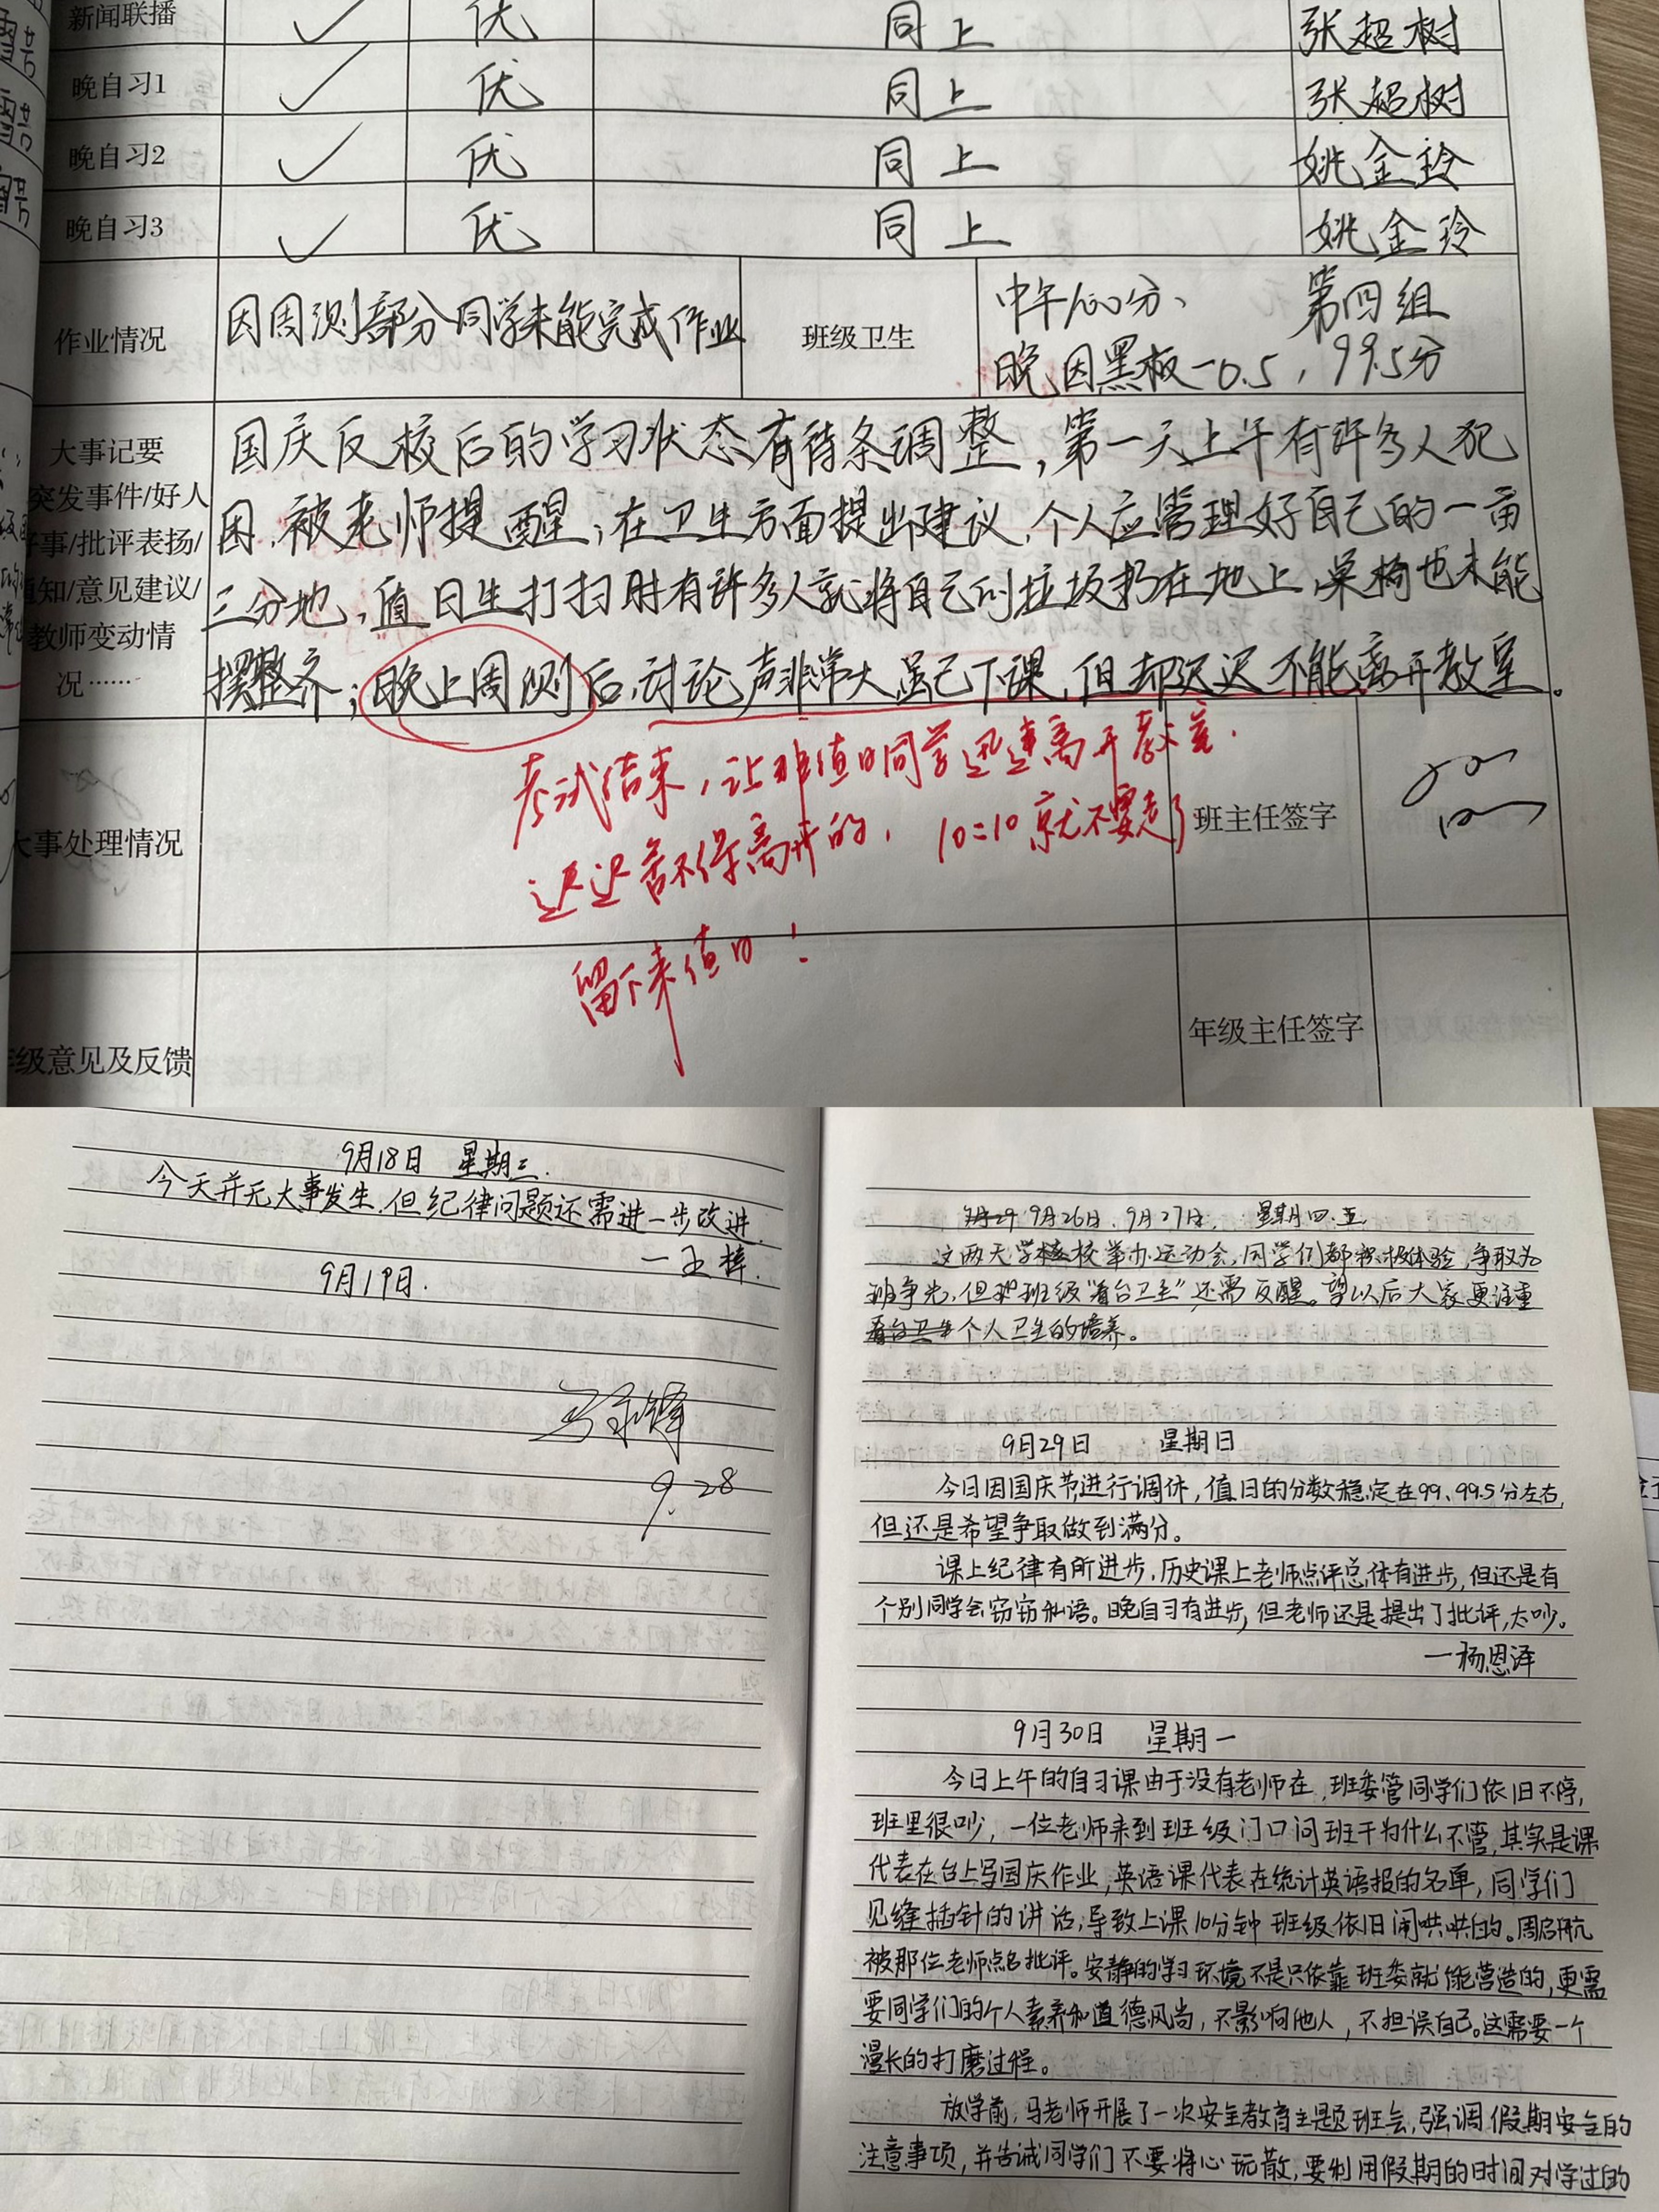 新闻联播 ✓ 优 同上 张超树
晚自习1 ✓ 优 同上 张超树
晚自习2 ✓ 优 同上 姚金玲
晚自习3 ✓ 优 同上 姚金玲
作业情况 因周测部分同学未能完成作业 班级卫生 中午100分、 第四组
晚因黑板-0.5，99.5分
大事记要
突发事件/好人
好事/批评表扬/
通知/意见建议/
教师变动情
况……
国庆反校后的学习状态有待条调整，第一天上午有许多人犯
困，被老师提醒；在卫生方面提出建议，个人应管理好自己的一亩
三分地，值日生打扫时有许多人就将自己的垃圾扔在地上，桌椅也未能
摆整齐；晚上周测后，讨论声非常大虽已下课，但却迟迟不能离开教室。
考试结束，让非值日同学迅速离开教室.
迟迟舍不得离开的，10:10就不要走了
留下来值日！
大事处理情况 班主任签字
年级意见及反馈 年级主任签字
9月18日 星期三.
今天并无大事发生.但纪律问题还需进一步改进.
—王梓.
9月19日.
9.28
9月26日、9月27日， 星期四.五
这两天学校举办运动会，同学们都积极体验，争取为
班争光，但班级“看台卫生”还需反醒。望以后大家更注重
看台卫生个人卫生的培养。
9月29日 星期日
今日因国庆节进行调休，值日的分数稳定在99、99.5分左右，
但还是希望争取做到满分。
课上纪律有所进步，历史课上老师点评总体有进步，但还是有
个别同学会窃窃私语。晚自习有进步，但老师还是提出了批评，太吵。
—杨恩泽
9月30日 星期一
今日上午的自习课由于没有老师在，班委管同学们依旧不停，
班里很吵，一位老师来到班级门口问班干为什么不管，其实是课
代表在台上写国庆作业，英语课代表在统计英语报的名单，同学们
见缝插针的讲话，导致上课10分钟班级依旧闹哄哄的。周启航
被那位老师点名批评。安静的学习环境不是只依靠班委就能营造的，更需
要同学们的个人素养和道德风尚，不影响他人，不担误自己。这需要一个
漫长的打磨过程。
放学前，马老师开展了一次安全教育主题班会，强调假期安全的
注意事项，并告诫同学们不要将心玩散，要利用假期的时间对学过的